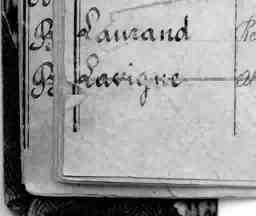 B Laurand
B Lavigne